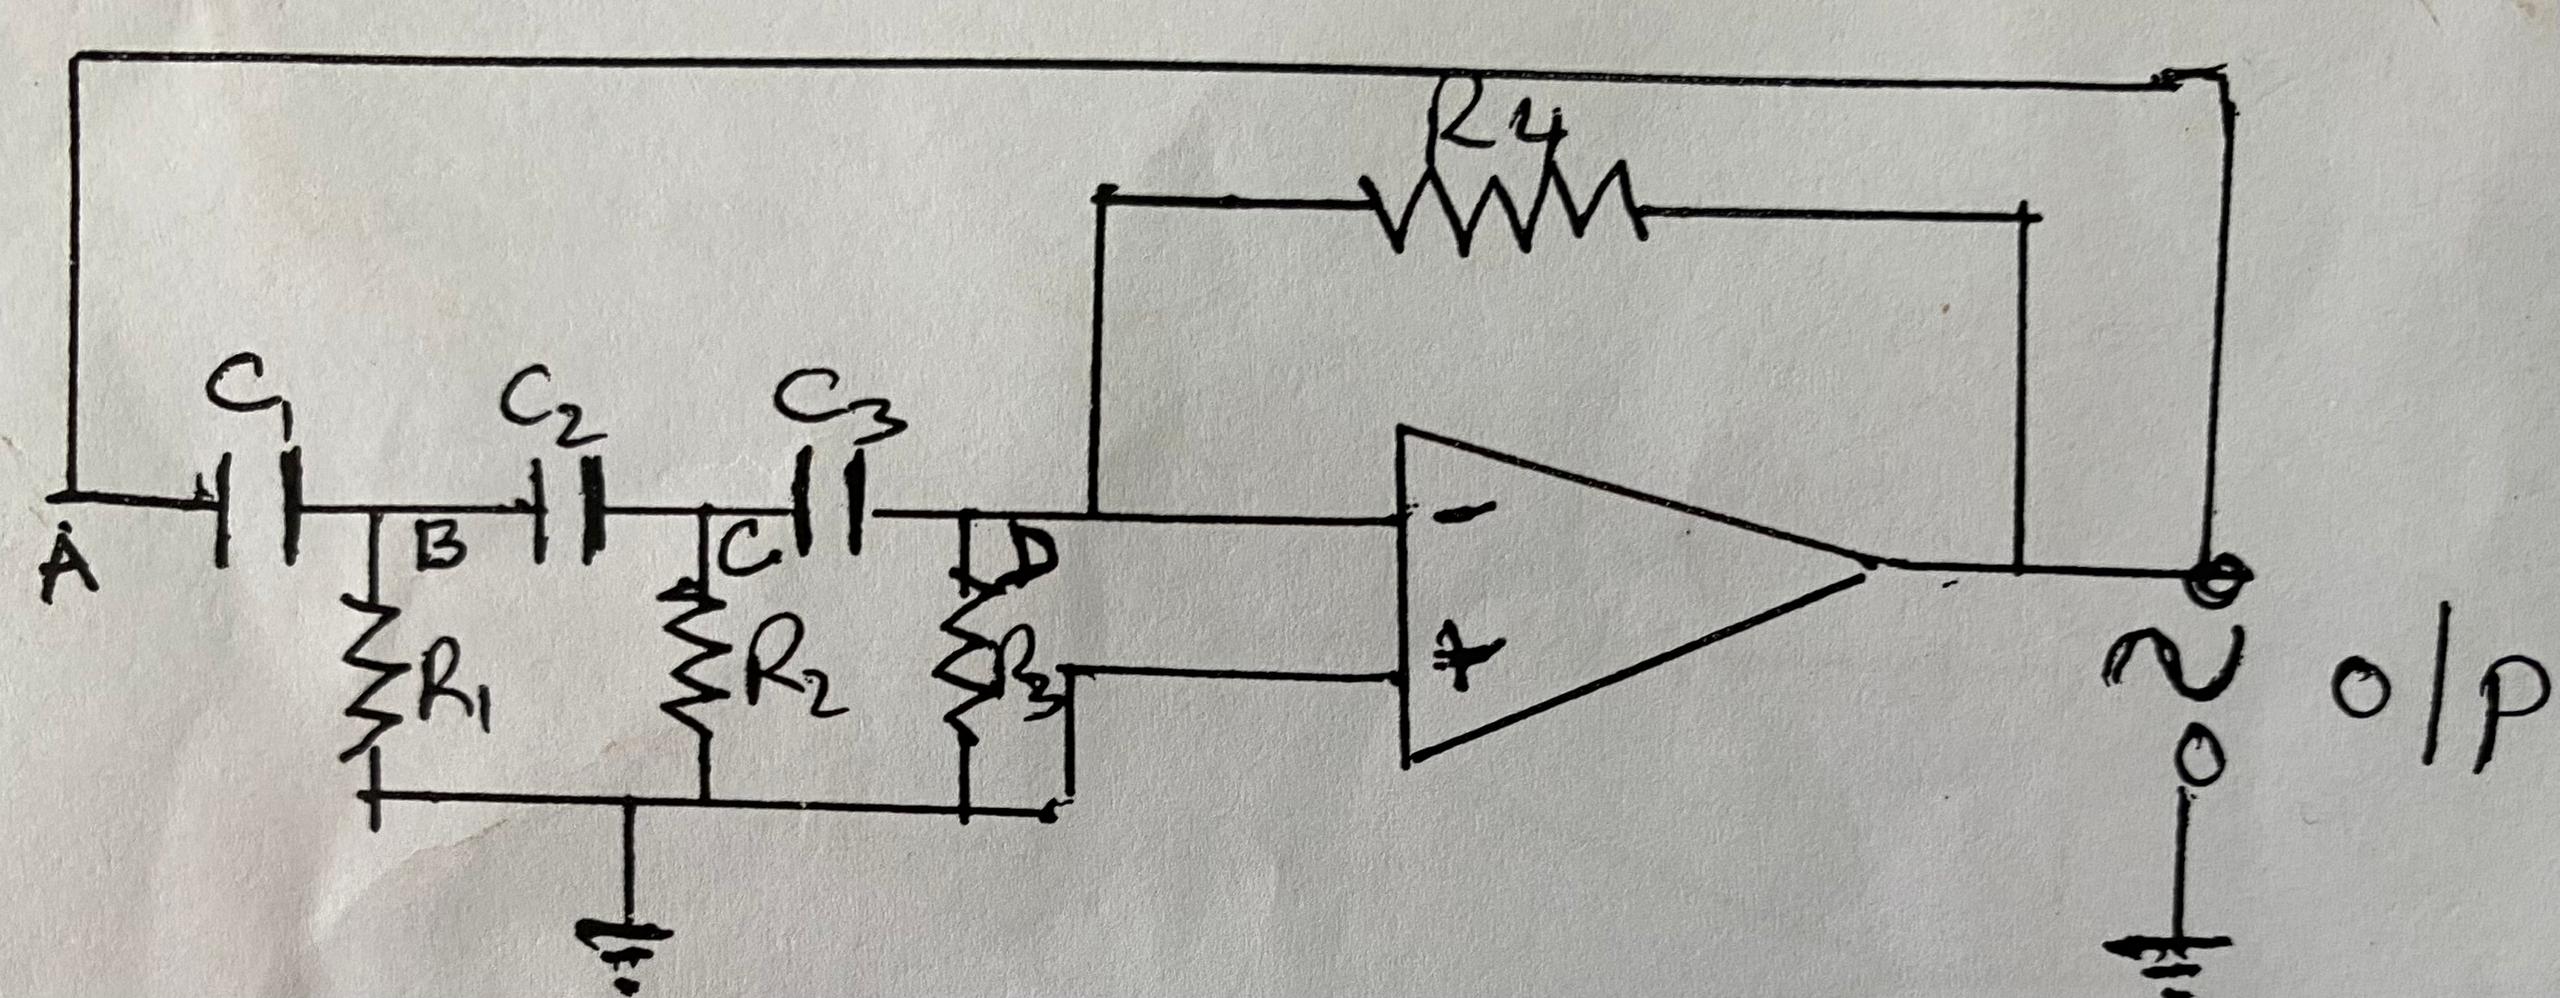 R4
C1 C2 C3
A B C D
-
R1 R2 R3 +
~ o/p